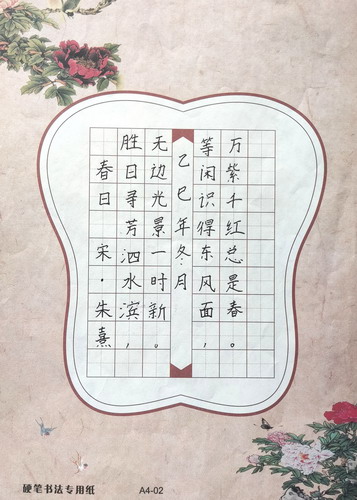 春日 宋·朱熹
胜日寻芳泗水滨，
无边光景一时新。
乙巳年冬月
等闲识得东风面，
万紫千红总是春。
硬笔书法专用纸 A4-02